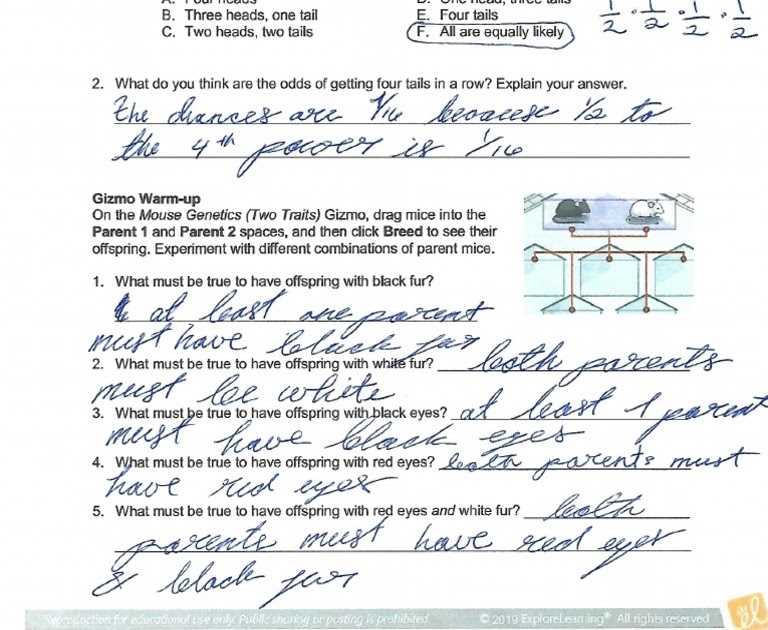 B. Three heads, one tail
E. Four tails
C. Two heads, two tails
F. All are equally likely
1/2 · 1/2 · 1/2 · 1/2
2. What do you think are the odds of getting four tails in a row? Explain your answer.
The chances are 1/16 because 1/2 to
the 4th power is 1/16
Gizmo Warm-up
On the Mouse Genetics (Two Traits) Gizmo, drag mice into the
Parent 1 and Parent 2 spaces, and then click Breed to see their
offspring. Experiment with different combinations of parent mice.
1. What must be true to have offspring with black fur?
at least one parent
must have black fur
2. What must be true to have offspring with white fur? both parents
must be white
3. What must be true to have offspring with black eyes? at least 1 parent
must have black eyes
4. What must be true to have offspring with red eyes? both parents must
have red eyes
5. What must be true to have offspring with red eyes and white fur? both
parents must have red eyes
& black fur
Reproduction for educational use only. Public sharing or posting is prohibited.
© 2019 ExploreLearning® All rights reserved
el